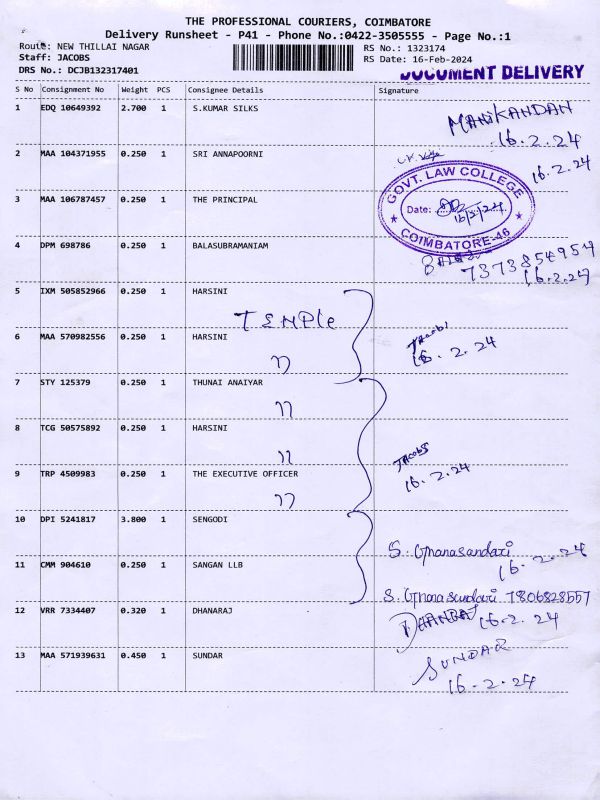 THE PROFESSIONAL COURIERS, COIMBATORE
Delivery Runsheet - P41 - Phone No.:0422-3505555 - Page No.:1
Route: NEW THILLAI NAGAR
RS No.: 1323174
Staff: JACOBS
RS Date: 16-Feb-2024
DRS No.: DCJB132317401
DOCUMENT DELIVERY
S No Consignment No Weight PCS Consignee Details Signature
1 EDQ 10649392 2.700 1 S.KUMAR SILKS
MANIKANDAN
16.2.24
2 MAA 104371955 0.250 1 SRI ANNAPOORNI
16.2.24
3 MAA 106787457 0.250 1 THE PRINCIPAL
GOVT. LAW COLLEGE
Date:
COIMBATORE-46
4 DPM 698786 0.250 1 BALASUBRAMANIAM
7373854954
16.2.24
5 IXM 505852966 0.250 1 HARSINI
TEMPle
6 MAA 570982556 0.250 1 HARSINI
JACObS
16.2.24
7 STY 125379 0.250 1 THUNAI ANAIYAR
8 TCG 50575892 0.250 1 HARSINI
JACObS
9 TRP 4509983 0.250 1 THE EXECUTIVE OFFICER
16.2.24
10 DPI 5241817 3.800 1 SENGODI
S. Gnanasundari
16.2.24
11 CMM 904610 0.250 1 SANGAN LLB
S. Gnanasundari 7806828557
12 VRR 7334407 0.320 1 DHANARAJ
DHANRAJ 16.2.24
13 MAA 571939631 0.450 1 SUNDAR
SUNDAR
16.2.24